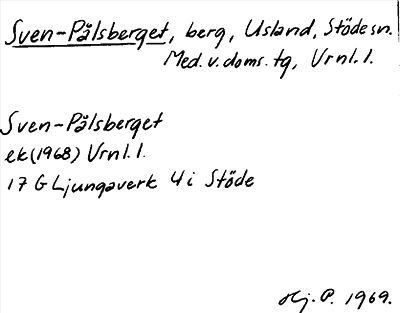 Sven-Pålsberget, berg, Usland, Stöde sn.
Med. v. doms. tg, Vrnl. l.
Sven-Pålsberget
ek (1968) Vrnl. l.
17 G Ljungaverk 4 i Stöde
Hj. P. 1969.